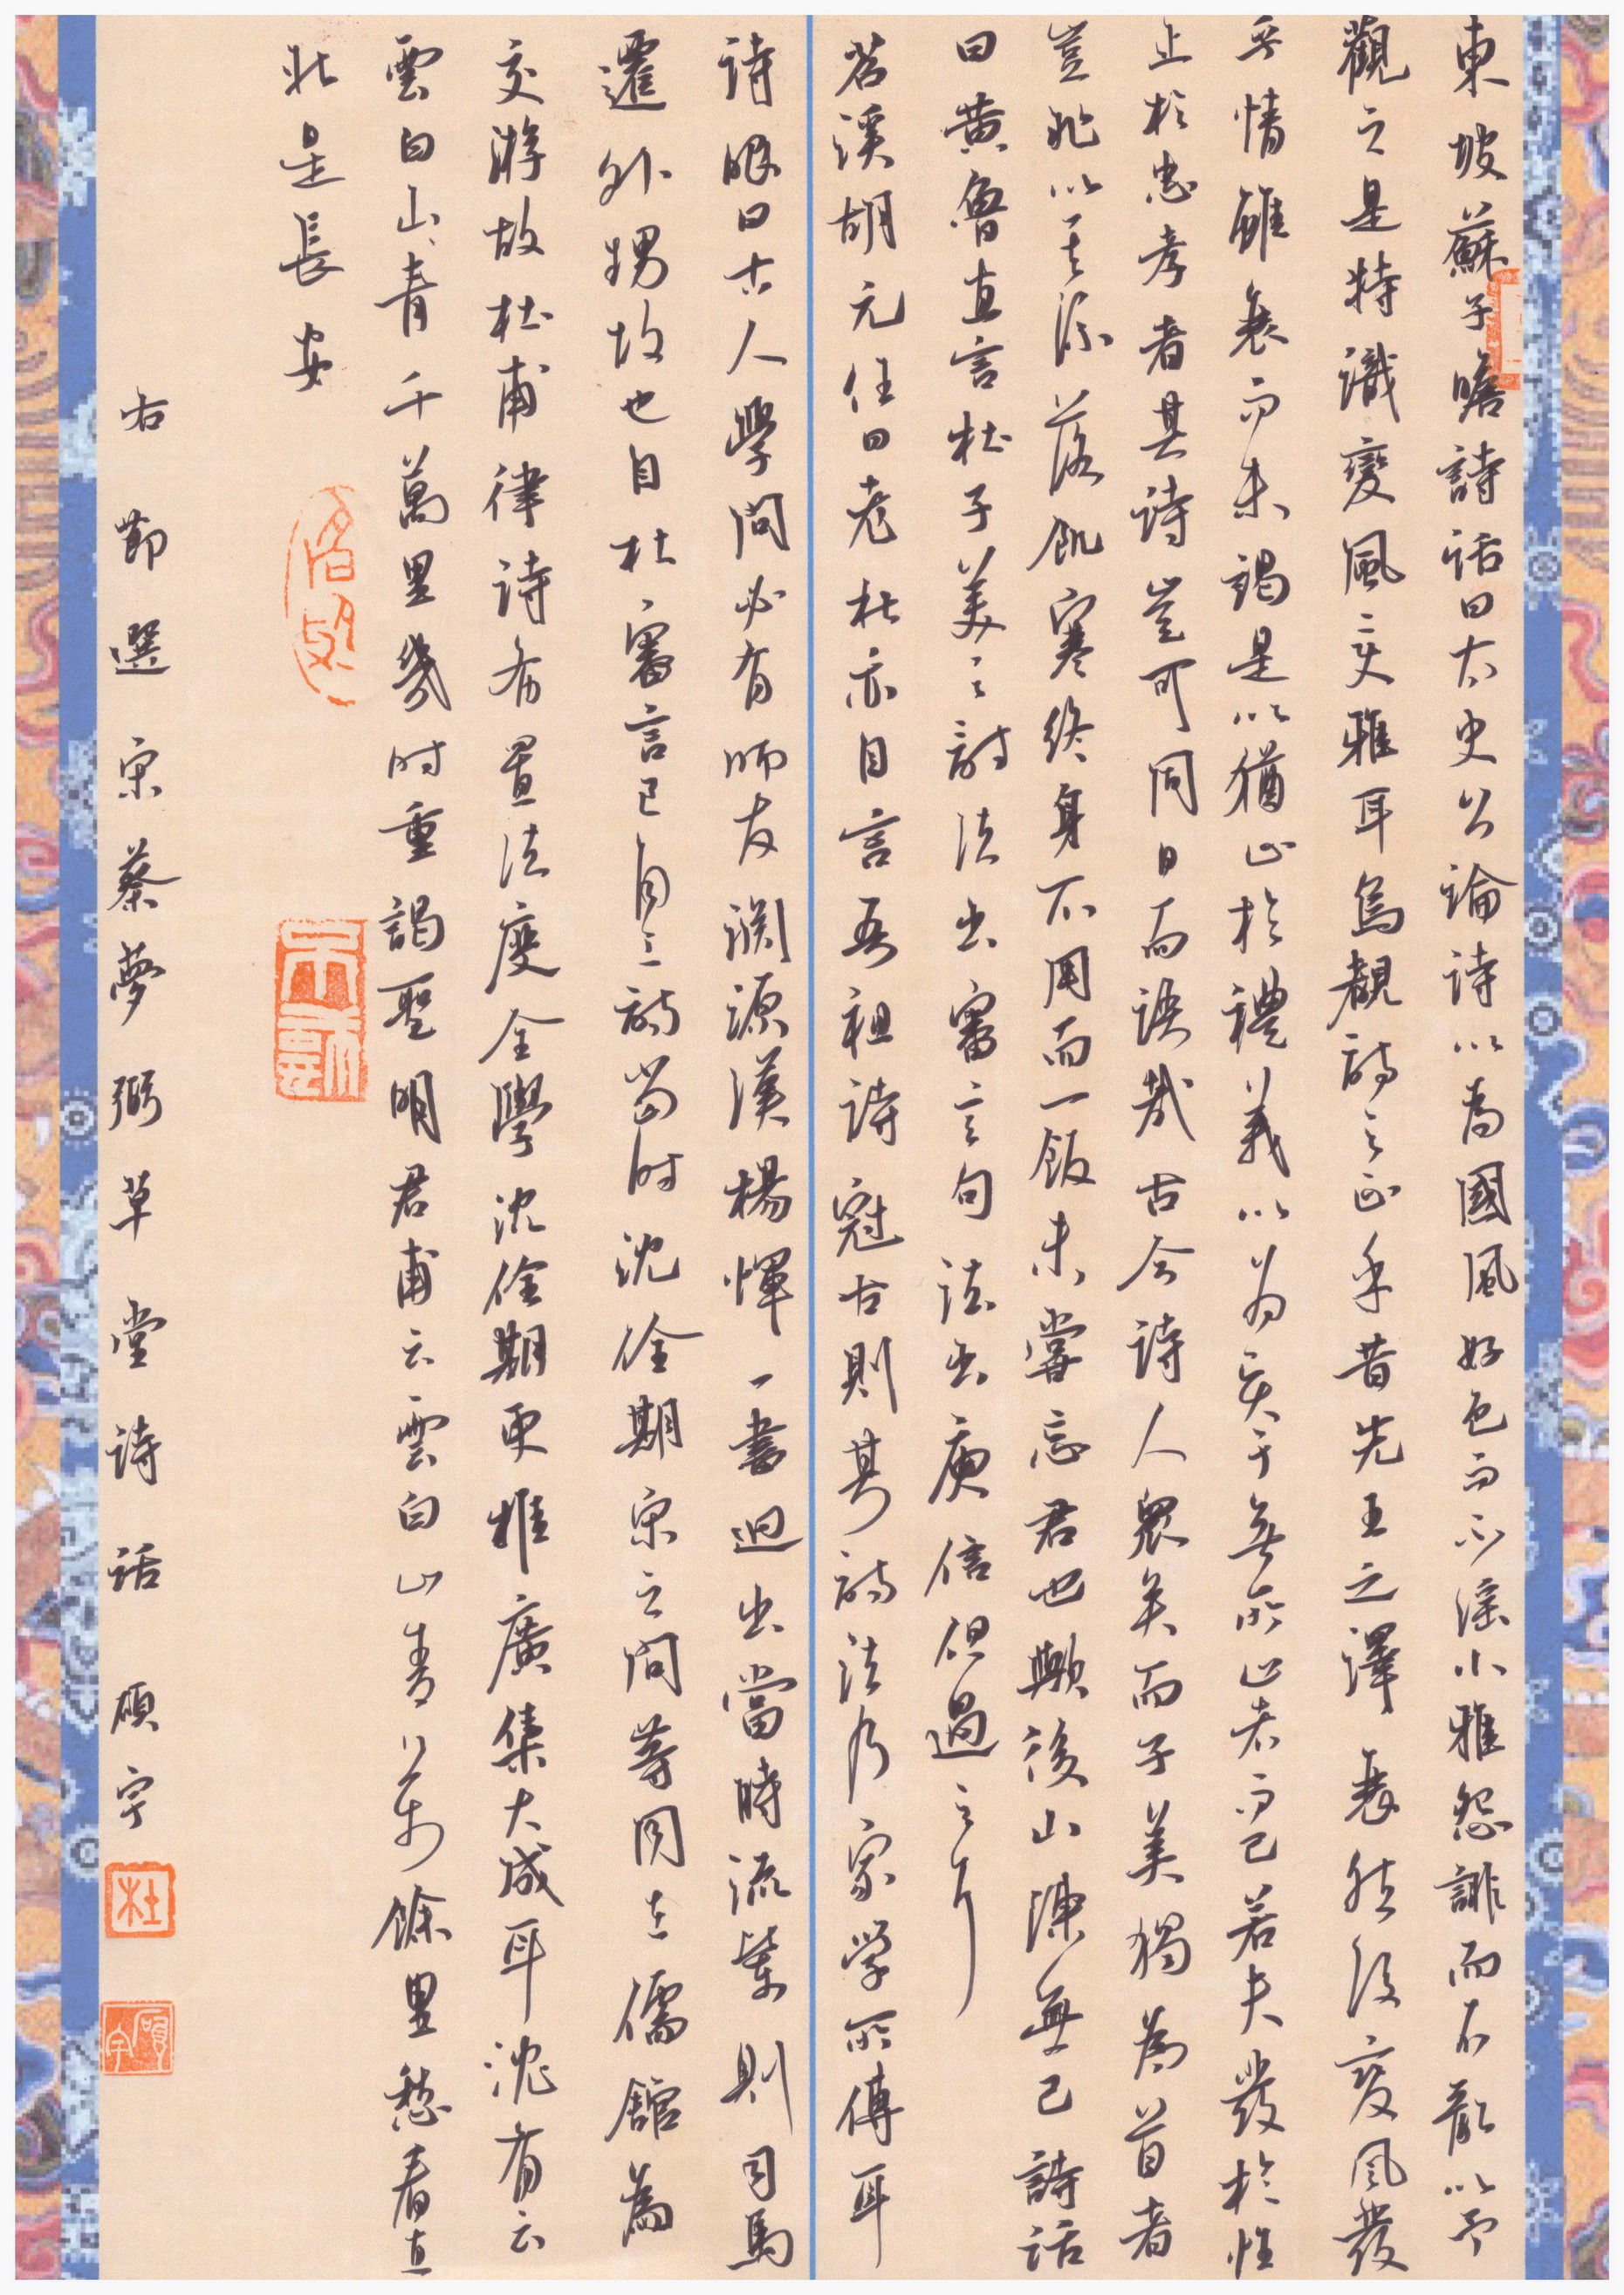 東坡蘇子瞻詩話曰太史公論詩以為國風好色而不淫小雅怨誹而不亂以予
觀之是特識變風變雅耳烏覩詩之正乎昔先王之澤衰然後變風發
乎情雖衰而未竭是以猶止於禮義以為賢于無所止者而已若夫發於性
止於忠孝者其詩豈可同日而語哉古今詩人衆矣而子美獨為首者
豈非以其流落飢寒終身不用而一飯未嘗忘君也歟後山陳無己詩話
曰黃魯直言杜子美之詩法出審言句法出庾信但過之耳
苕溪胡元任曰老杜亦自言吾祖詩冠古則其詩法乃家學所傳耳
詩眼曰古人學問必有師友淵源漢楊惲一書迥出當時流輩則司馬
遷外甥故也自杜審言已自工詩當時沈佺期宋之問等同在儒館為
交游故杜甫律詩布置法度全學沈佺期更推廣集大成耳沈有云
雲白山青千萬里幾時重謁聖明君甫云雲白山青萬餘里愁看直
北是長安
右節選宋蔡夢弼草堂詩話 碩宇
杜
碩宇